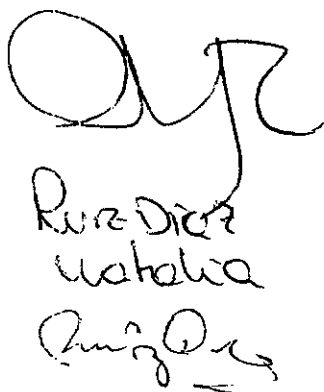 Ruiz Diaz
Natalia
Ruiz Diaz